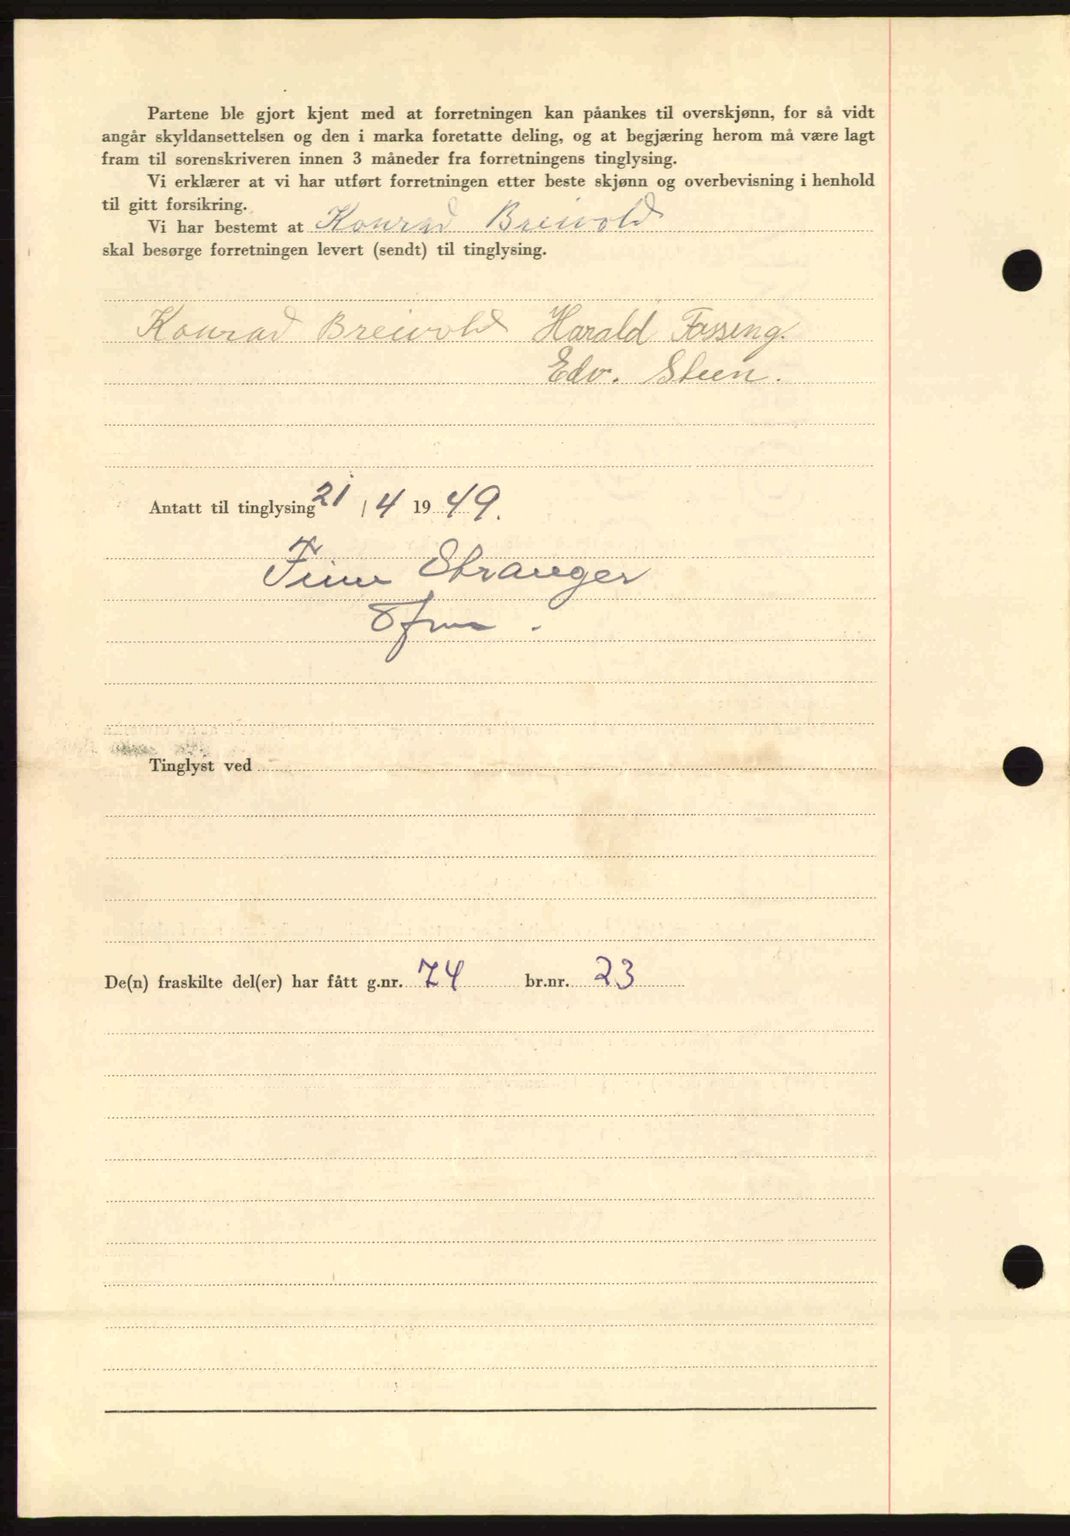 Partene ble gjort kjent med at forretningen kan påankes til overskjønn, for så vidt
angår skyldansettelsen og den i marka foretatte deling, og at begjæring herom må være lagt
fram til sorenskriveren innen 3 måneder fra forretningens tinglysing.
Vi erklærer at vi har utført forretningen etter beste skjønn og overbevisning i henhold
til gitt forsikring.
Vi har bestemt at Konrad Breivold
skal besørge forretningen levert (sendt) til tinglysing.
Konrad Breivold Harald Fosseng.
Edv. Steen.
Antatt til tinglysing 21 / 4 19 49.
Finn Stranger
Tinglyst ved
De(n) fraskilte del(er) har fått g.nr. 74 br.nr. 23